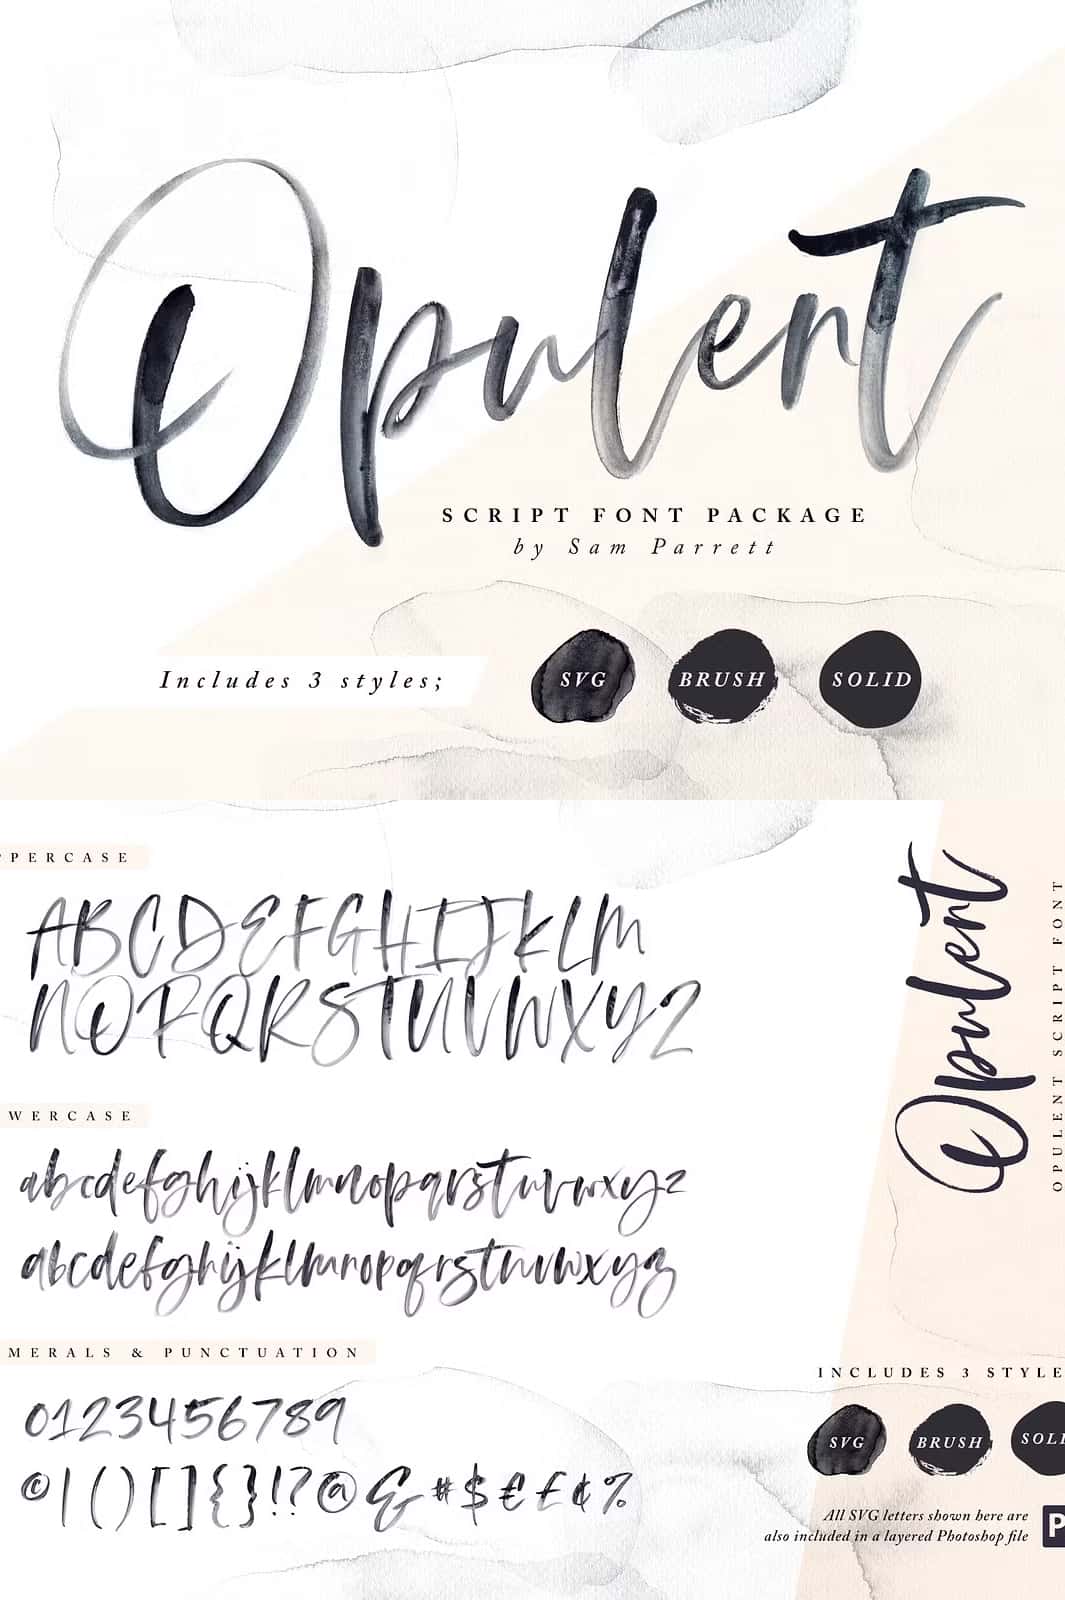 Opulent
SCRIPT FONT PACKAGE
by Sam Parrett
Includes 3 styles;
SVG
BRUSH
SOLID
PPERCASE
ABCDEFGHIJKLM
NOPQRSTUVWXYZ
WERCASE
abcdefghijklmnopqrstuvwxyz
abcdefghijklmnopqrstuvwxyz
MERALS & PUNCTUATION
0123456789
©|()[]{}!?@&#$€£¢%
Opulent
OPULENT SCRIPT FONT
INCLUDES 3 STYLE
SVG
BRUSH
SOLI
All SVG letters shown here are
also included in a layered Photoshop file
P